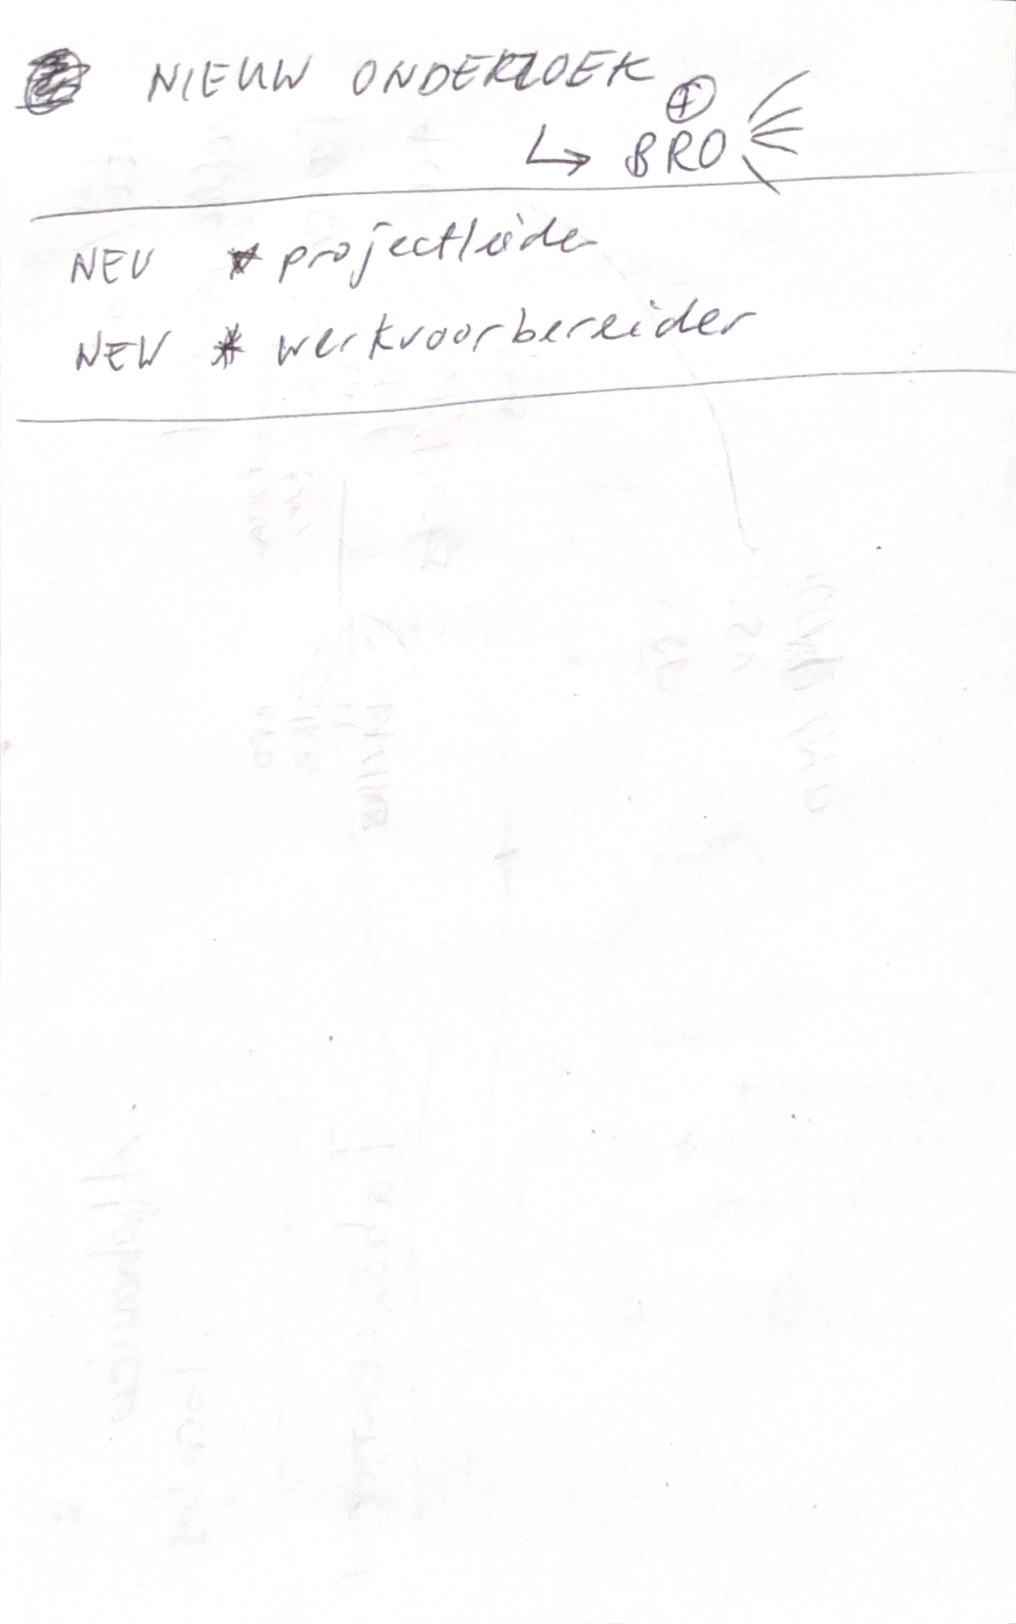 NIEUW ONDERZOEK
↳ BRO
NEW * projectleider
NEW * werkvoorbereider